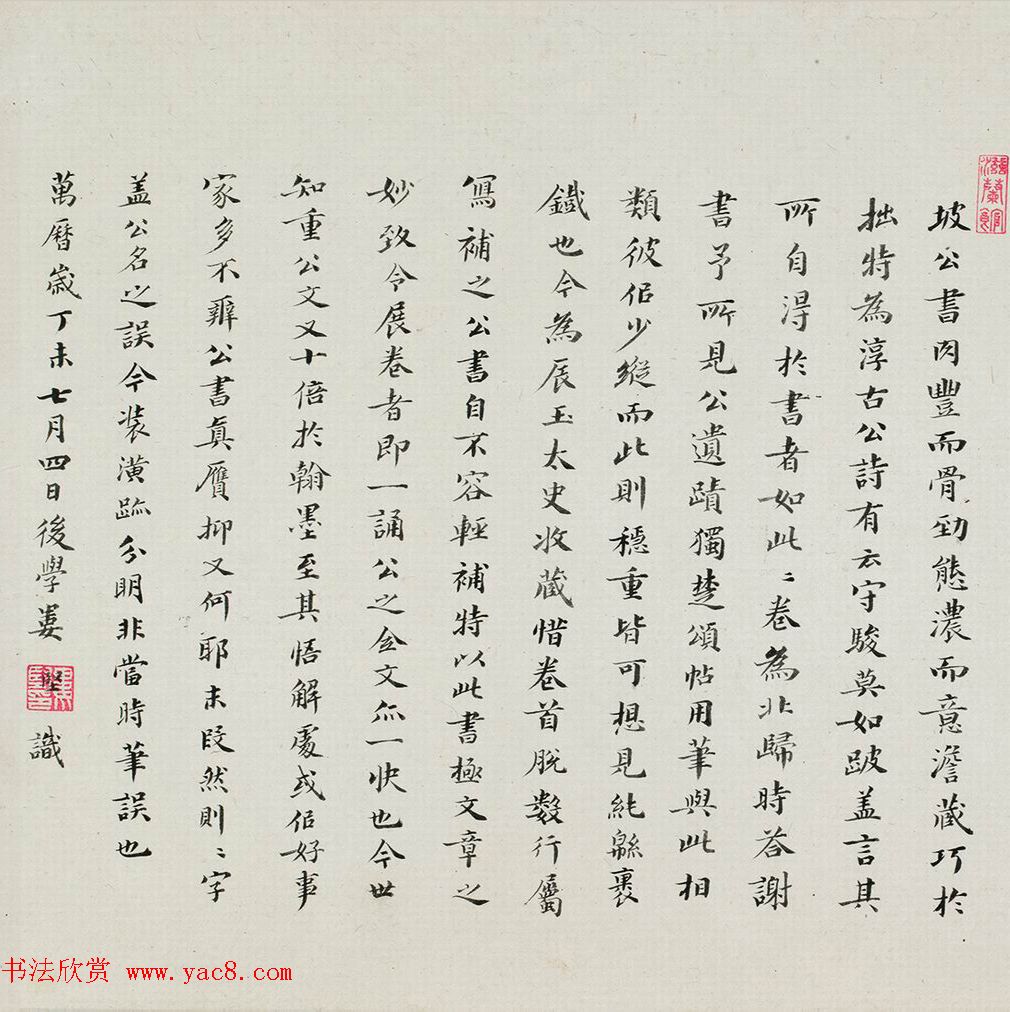 坡公書肉豐而骨勁態濃而意澹藏巧於
拙特為淳古公詩有云守駿莫如跛盖言其
所自得於書者如此〻卷為北歸時答謝
書予所見公遺蹟獨楚頌帖用筆與此相
類彼但少縱而此則穩重皆可想見純緜裹
鐵也今為辰玉太史收藏惜卷首脫數行屬
寫補之公書自不容輕補特以此書極文章之
妙致令展卷者即一誦公之全文亦一快也今世
知重公文又十倍於翰墨至其悟解處或但好事
家多不辨公書真贋抑又何耶末段然則〻字
盖公名之誤今装潢跡分明非當時筆誤也
萬曆歲丁未七月四日後學婁堅識
书法欣赏 www.yac8.com